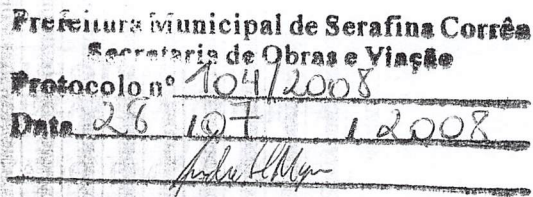 Prefeitura Municipal de Serafina Corrêa
Secretaria de Obras e Viação
Protocolo nº 104/2008
Data 28 / 07 / 2008